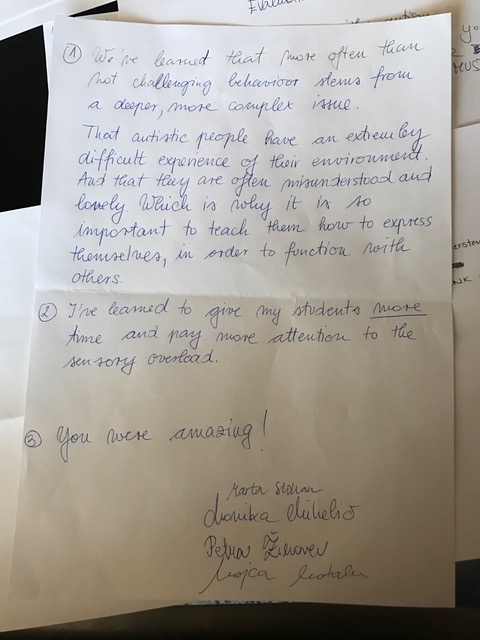 Evalua
① We've learned that more often than
not challenging behaviour stems from
a deeper, more complex issue.
That autistic people have an extremley
difficult experience of their environment.
And that they are often misunderstood and
lonely. Which is why it is so
important to teach them how to express
themselves, in order to function with
others.
② I've learned to give my students more
time and pay more attention to the
sensory overload.
③ You were amazing!
Marta
Monika Mihelič
Petra
Mojca